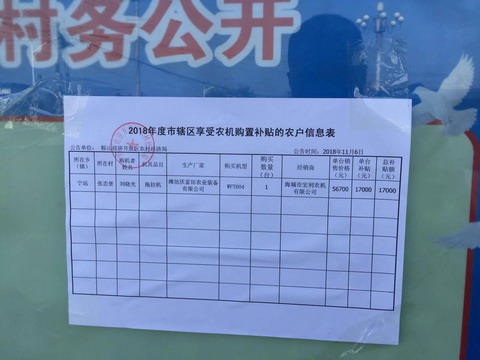 村务公开
2018年度市辖区享受农机购置补贴的农户信息表
公告单位：鞍山经济开发区农村经济局
公告时间：2018年11月6日
所在乡（镇） 所在村 购机者姓名 机具品目 生产厂家 购买机型 购买数量（台） 经销商 单台销售价格（元） 单台补贴额（元） 总补贴额（元）
宁远 张忠堡 刘晓光 拖拉机 潍坊沃富田农业装备有限公司 WFT604 1 海城市宏利农机有限公司 56700 17000 17000